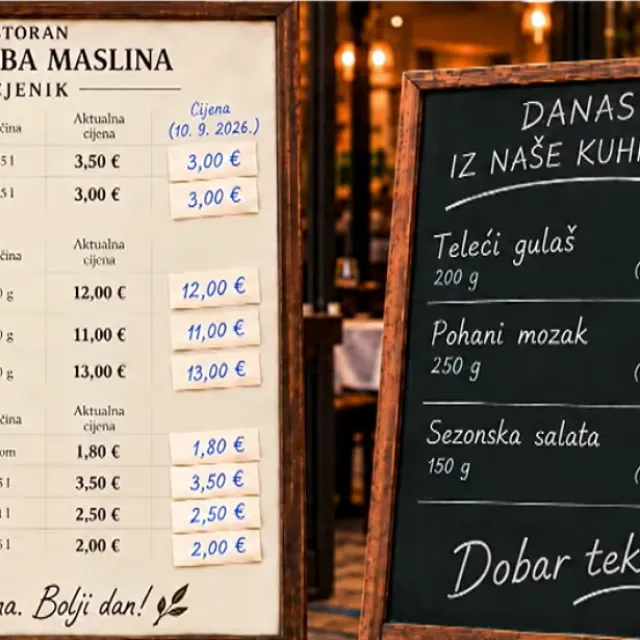 TORAN
BA MASLINA
CJENIK
čina Aktualna cijena Cijena (10. 9. 2026.)
5 l 3,50 € 3,00 €
5 l 3,00 € 3,00 €
čina Aktualna cijena
0 g 12,00 € 12,00 €
0 g 11,00 € 11,00 €
0 g 13,00 € 13,00 €
čina Aktualna cijena
om 1,80 € 1,80 €
5 l 3,50 € 3,50 €
1 l 2,50 € 2,50 €
5 l 2,00 € 2,00 €
na. Bolji dan!
DANAS
IZ NAŠE KUH
Teleći gulaš
200 g
Pohani mozak
250 g
Sezonska salata
150 g
Dobar tek